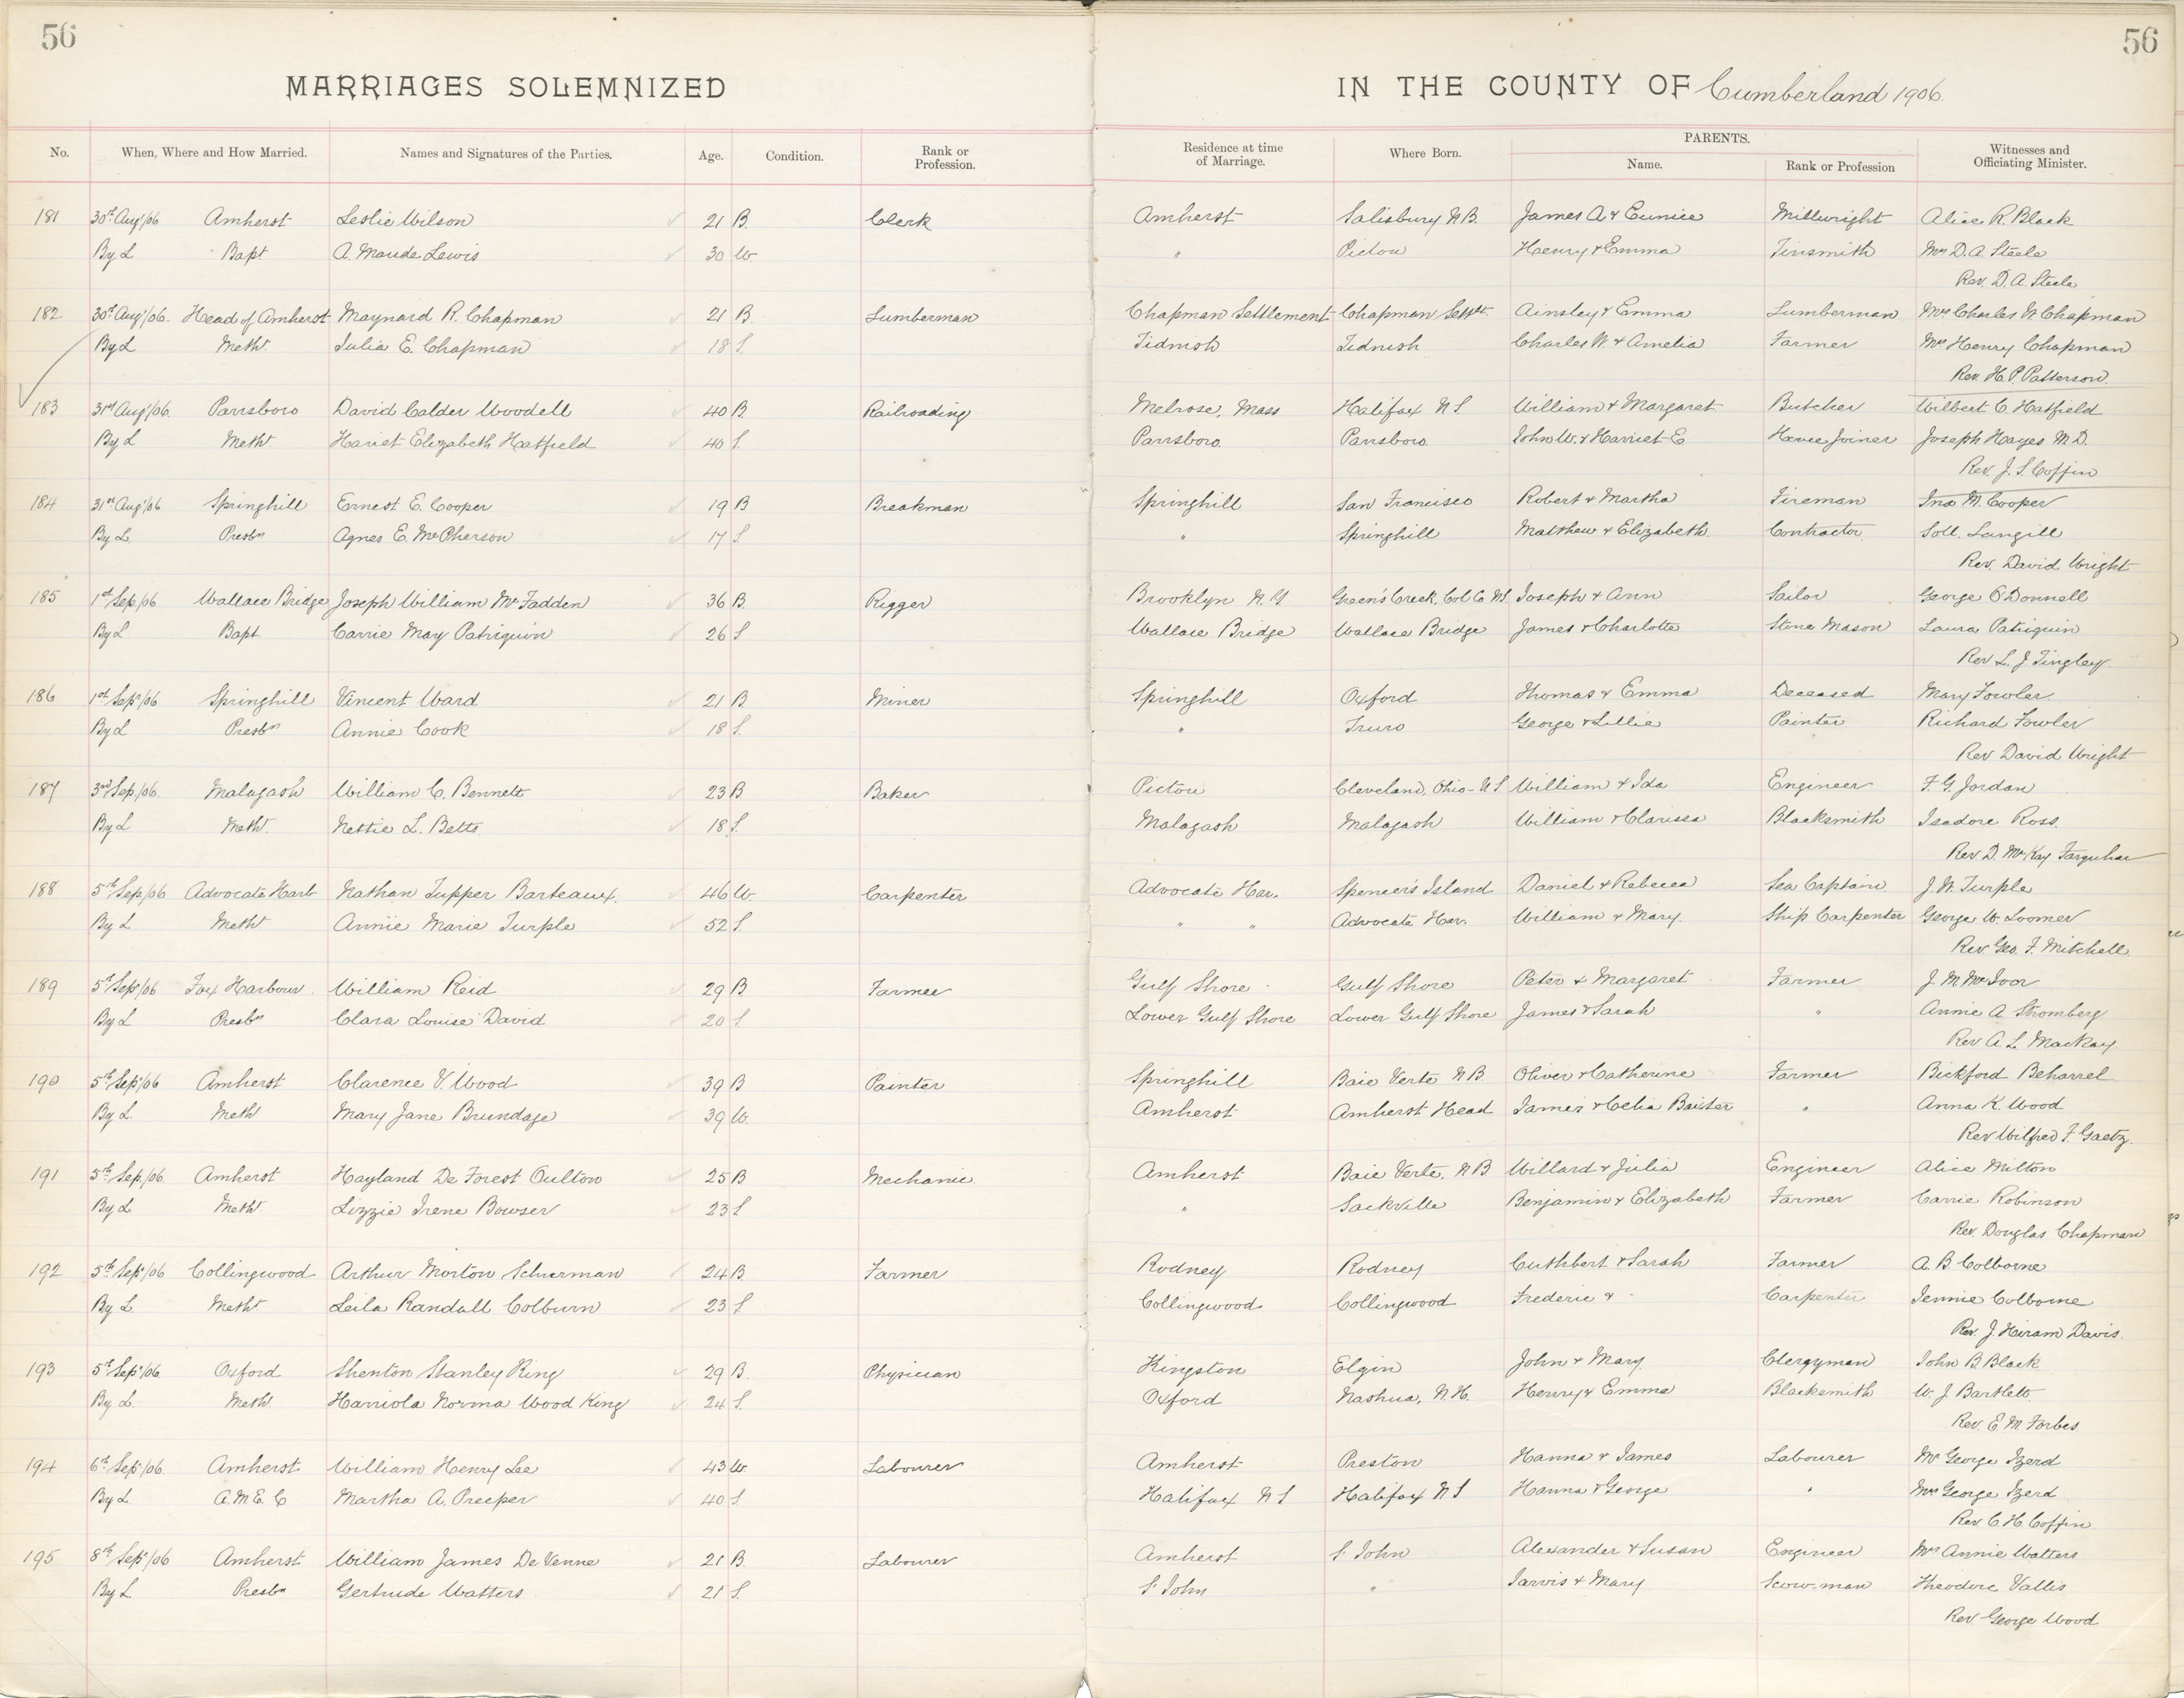 56
56
MARRIAGES SOLEMNIZED IN THE COUNTY OF Cumberland 1906.
No. When, Where and How Married. Names and Signatures of the Parties. Age. Condition. Rank or Profession. Residence at time of Marriage. Where Born. PARENTS. Name. Rank or Profession Witnesses and Officiating Minister.
181 30th Aug/06 Amherst Leslie Wilson 21 B. Clerk Amherst Salisbury N.B. James A & Eunice Millwright Alice R. Black
By L Bapt A. Maude Lewis 30 W " Pictou Henry & Emma Tinsmith Mrs D. A. Steele
Rev. D. A. Steele
182 30th Aug/06. Head of Amherst Maynard R. Chapman 21 B. Lumberman Chapman Settlement Chapman Settlt. Ainsley & Emma Lumberman Mrs Charles W Chapman
By L Meth. Julia E. Chapman 18 S. Tidnish Tidnish Charles W. & Amelia Farmer Mrs Henry Chapman
Rev. H. P. Patterson.
183 31st Aug/06. Parrsboro David Calder Woodell 40 B. Railroading Melrose, Mass Halifax N S. William & Margaret Butcher Wilbert C. Hatfield
By L Meth. Hariet Elizabeth Hatfield 40 S. Parrsboro. Parrsboro. John W. & Harriet E House Joiner Joseph Hayes M.D.
Rev. J. S. Coffin
184 31st Aug/06 Springhill Ernest E. Cooper 19 B Breakman Springhill San Francisco Robert & Martha Fireman Jno M. Cooper
By L. Presbn Agnes E. McPherson 17 S " Springhill Matthew & Elizabeth. Contractor Soll. Langill
Rev. David Wright
185 1st Sep/06 Wallace Bridge Joseph William McFadden 36 B. Rigger Brooklyn N. Y Green's Creek, Col Co N.S. Joseph & Ann Sailor George O'Donnell
By L Bapt Carrie May Patriquin 26 S Wallace Bridge Wallace Bridge James & Charlotte Stone Mason Laura Patriquin
Rev L. J. Tingley.
186 1st Sep/06 Springhill Vincent Ward 21 B Miner Springhill Oxford Thomas & Emma Deceased Mary Fowler
By L Presbn Annie Cook 18 S. " Truro George & Lillie Painter Richard Fowler
Rev David Wright
187 3rd Sep/06. Malagash William C. Bennett 23 B Baker Pictou Cleveland, Ohio - U S. William & Ida Engineer F. G. Jordan
By L Meth. Nettie L. Betts 18 S. Malagash Malagash William & Clarissa Blacksmith Isadore Ross.
Rev D. McKay Farquhar
188 5th Sep/06 Advocate Harb Nathan Tupper Barteaux. 46 W. Carpenter Advocate Har. Spencer's Island Daniel & Rebecca Sea Captain J. W. Turple
By L Meth Annie Marie Turple 52 S. " " Advocate Har. William & Mary. Ship Carpenter George W. Loomer
Rev. Geo. F. Mitchell.
189 5th Sep/06 Fox Harbour William Reid 29 B Farmer Gulf Shore Gulf Shore Peter & Margaret Farmer J. M McIvor
By L Presbn Clara Louise David 20 S. Lower Gulf Shore Lower Gulf Shore James & Sarah " Annie A. Stromberg
Rev A. L. MacKay
190 5th Sep/06 Amherst Clarence V. Wood 39 B Painter Springhill Baie Verte N B. Oliver & Catherine Farmer Bickford Beharrel
By L. Meth Mary Jane Brundage 39 W. Amherst Amherst Head James & Celia Baxter " Anna K. Wood
Rev Wilfred F. Gaetz.
191 5th Sep/06 Amherst Hayland De Forest Oulton 25 B Mechanic. Amherst Baie Verte, N B Willard & Julia Engineer Alice Milton
By L Meth. Lizzie Irene Bowser 23 S " Sackville Benjamin & Elizabeth Farmer Carrie Robinson
Rev. Douglas Chapman
192 5th Sep/06 Collingwood Arthur Morton Schurman 24 B Farmer Rodney Rodney Cuthbert & Sarah Farmer A. B Colborne
By L. Meth Leila Randall Colburn 23 S. Collingwood. Collingwood Frederic & - Carpenter Jennie Colborne
Rev. J. Hiram Davis.
193 5th Sep/06 Oxford Shenton Stanley King 29 B. Physician Kingston Elgin John & Mary Clergyman John B. Black
By L. Meth Harriola Norma Wood King 24 S. Oxford Nashua, N. H. Henry & Emma Blacksmith W. J. Bartlett
Rev. E M Forbes
194 6th Sep/06. Amherst William Henry Lee 43 W. Labourer Amherst Preston Hanna & James Labourer Mr George Izerd
By L. A. M E. C Martha A. Preeper 40 S. Halifax N S Halifax N S Hanna & George " Mrs George Izerd
Rev. C. H. Coffin.
195 8th Sep/06 Amherst William James De Venne 21 B. Labourer Amherst St John Alexander & Susan Engineer Mrs Annie Watters
By L Presbn Gertrude Watters 21 S. St John " Jarvis & Mary Scow-man Theodore Vallis
Rev. George Wood